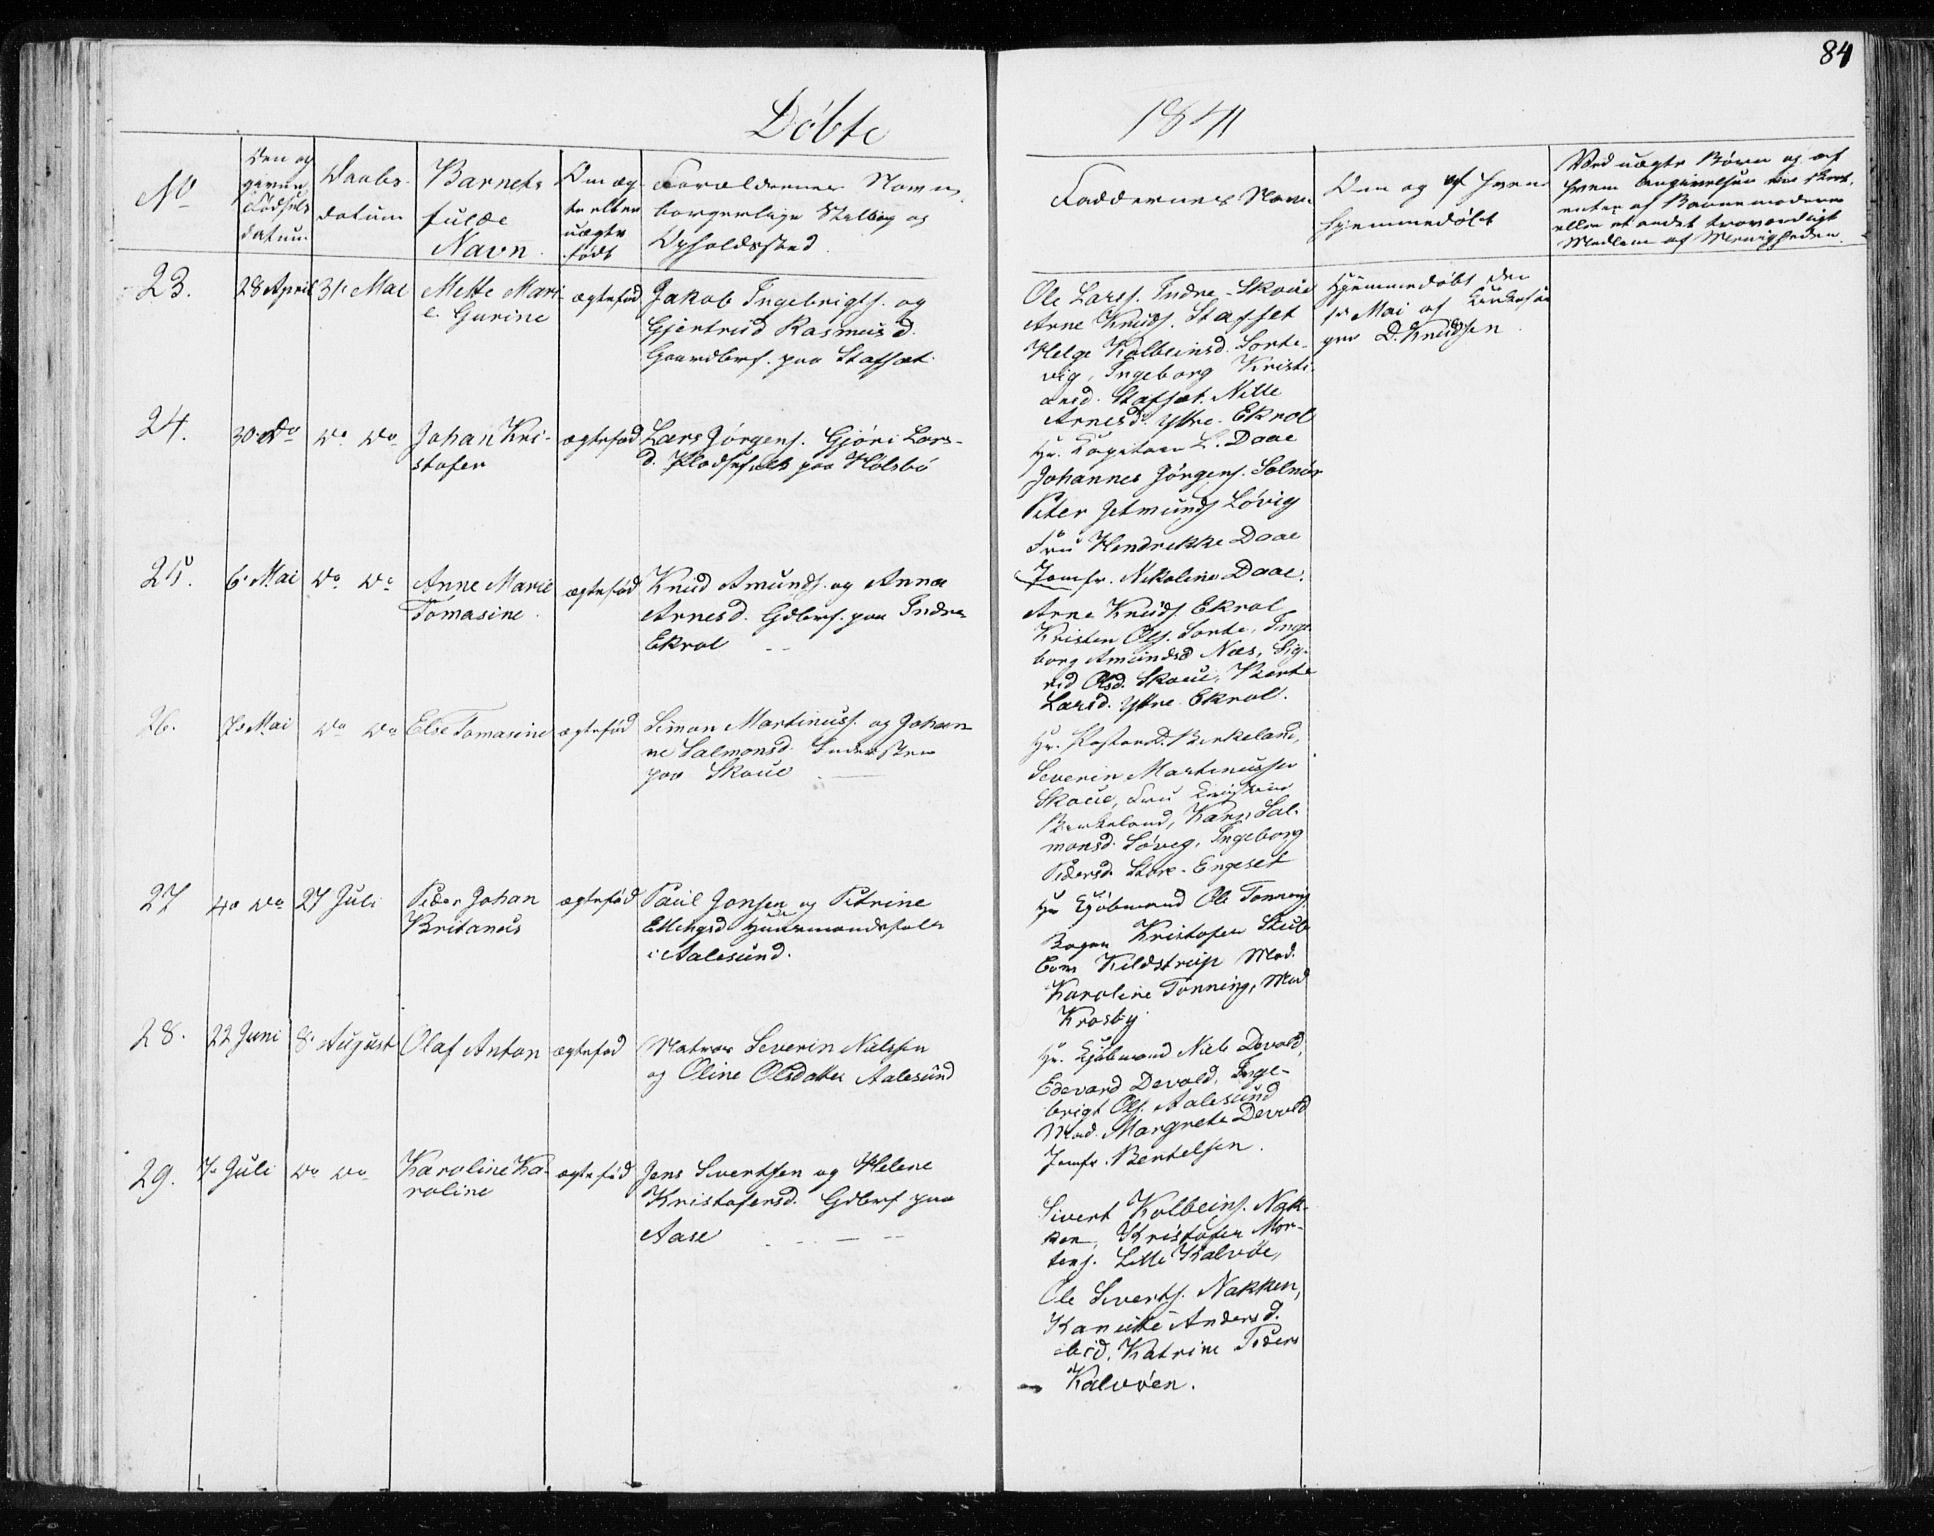 84
Døbte 1841
No
Den og
givne
Fødsels
datum
Daabs-
datum
Barnets
fulde
Navn.
Om æg-
te eller
uægte
født
Forældrenes Navn,
borgerlige Stilling og
Opholdssted.
Faddernes Navn
Om og af hvem
hjemmedøbt
Ved uægte Børn og af
hvem
enten af Barnemoderen
eller et andet troværdigt
Medlem af Menigheden.
23.
28 April
31. Mai
Mette Mari-
e Gurine
ægtefød
Jakob Ingebrigts. og
Gjertrud Rasmusd.
Gaardbrf. paa Stafset.
Ole Larss. Indre-Skoue
Arne Knuds. Stafset
Helge Kolbeinsd. Sorte-
vig, Ingeborg Kristi-
ansd. Stafset. Nille
Arnesd. Ytre-Ekrol
Hjemmedøbt den
1. Mai af Kirkesan-
ger D. Knudsen.
24.
30 do
do do
Johan Kri-
stofer
ægtefød
Lars Jørgens. Gjøri Lars-
d. Pladsfolk paa Holsbø
Hr. Kapitain L. Daae
Johannes Jørgens. Solnør
Peter Jetmunds Løvig
Fru Hendrikke Daae
Jomfr. Nikoline Daae.
25.
6. Mai
do do
Anne Marie
Tomasine.
ægtefød
Knud Amunds. og Anna
Arnesd. Gdbrf. paa Indre
Ekrol
Arne Knuds Ekrol
Kristen Ols. Sorte, Inge-
borg Amundsd Næs, Sig-
rid Olsd. Skoue, Berte
Larsd. Ytre Ekrol.
26.
7. Mai
do do
Else Tomasine
ægtefød
Simon Martinuss. og Johan-
ne Salmonsd. Inderster
paa Skoue
Hr. Pastor D. Birkeland,
Severin Martinussen
Skoue, Fru
Birkeland, Karn Sal-
monsd. Løvig, Ingeborg
Pedersd. Store-Engeset
27
4 do
27 Juli
Peder Johan
Britanus
ægtefød
Paul Jonsen og Petrine
Ellingsd Huusmandsfolk
i Aalesund.
Hr Kjøbmand Ole Tonning
Bager Kristofer Stub
Kildstrup Mad.
Karoline Tonning, Mad
Krosby.
28.
22 Juni
8. August
Olaf Anton
ægtefød
Matros Severin Nielssen
og Oline Olsdatter Aalesund
Hr. Kjøbmand Niels Devold,
Edevard Devold, Inge-
brigt Ols. Aalesund
Mad. Margrete Devold
Jomfr. Bertelsen.
29.
7. Juli
do do
Karoline Ka-
roline
ægtefød
Jens Sivertsen og Helene
Kristofersd. Gdbrf paa
Aase
Sivert Kolbeins. Nak-
ken, Kristofer Mor-
tens. Lille Kalvøe,
Ole Siverts. Nakken,
Kanutte Andersd.
ibid, Katrine Peders
Kalvøen.